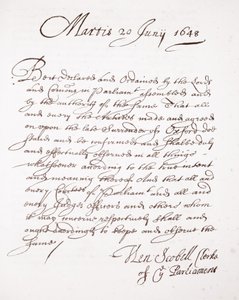 Martis 20 Junij 1648
Be it declared and Ordained by the Lords
and Comons in Parliamt assembled and
by the authority of the same That all
and every the Articles made and agreed
on upon the late Surrender of Oxford doe
stand and be confirmed and shalbe duly
and effectually observed in all things
whatsoever according to the true intent
and meaning thereof And that all and
every Houses of Parliamt and all and
every Judges officers and others whom
it may concerne respectively shall and
ought accordingly to obey and observe the
same
Hen Scobell Cleric
of ye Parliament